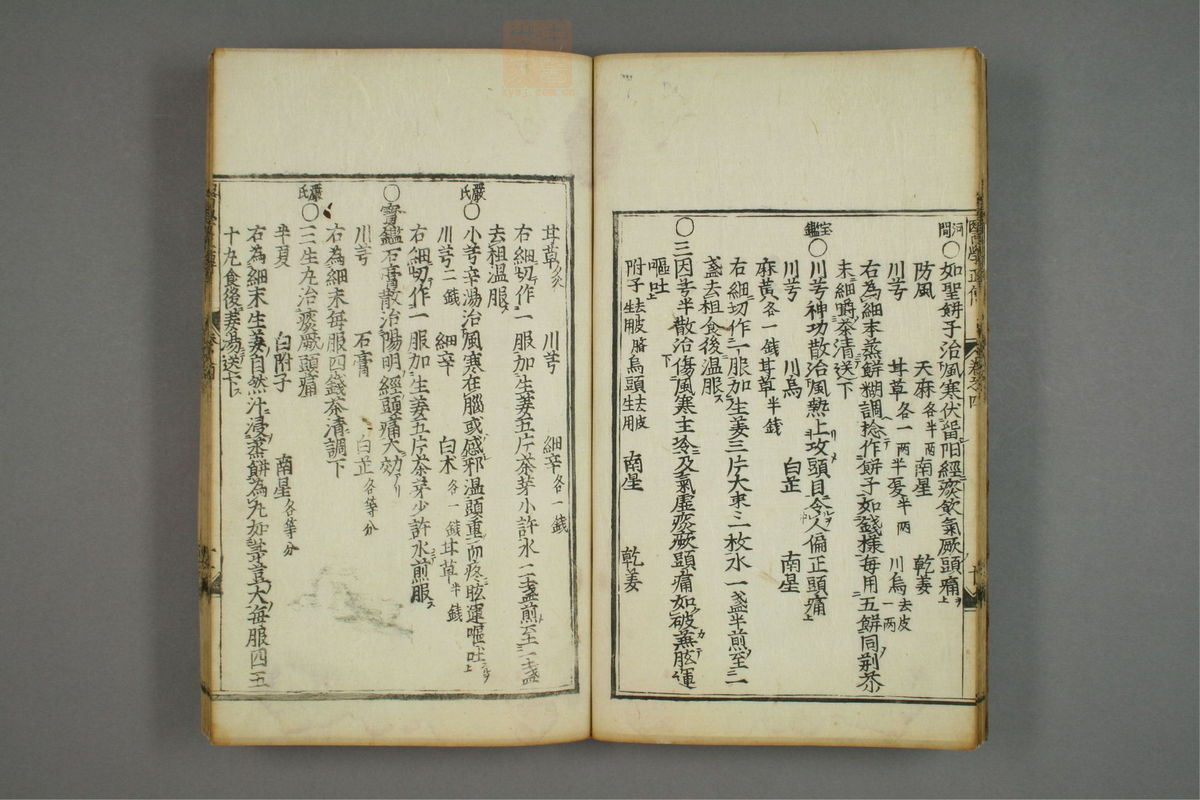 醫學正傳
卷之四
河間
○如聖餅子治風寒伏留陽經痰飲氣厥頭痛
防風 天麻各半兩 南星 乾姜
川芎 甘草各一兩 半夏半兩 川烏去皮一兩
右為細末蒸餅糊調捻作餅子如錢樣每用五餅同荊芥
末細嚼茶清送下
宝鑑
○川芎神功散治風熱上攻頭目令人偏正頭痛
川芎 川烏 白芷 南星
麻黃各一錢 甘草半錢
右細切作一服加生姜三片大枣三枚水一盞半煎至一
盞去柤食後温服
○三因芎半散治傷風寒主冷及氣虛痰厥頭痛如破兼眩運
嘔吐
附子去皮生用 烏頭去皮生用 南星 乾姜
甘草炙 川芎 細辛各一錢
右細切作一服加生姜五片茶芽小許水二盞煎至一盞
去柤温服
嚴氏
○小芎辛湯治風寒在腦或感邪溫頭重而疼眩運嘔吐
川芎二錢 細辛 白朮各一錢 甘草半錢
右細切作一服加生姜五片茶芽少許水煎服
○寶鑑石膏散治陽明經頭痛大効
川芎 石膏 白芷各等分
右為細末每服四錢茶清調下
嚴氏
○三生丸治痰厥頭痛
半夏 白附子 南星各等分
右為細末生姜自然汁浸蒸餅為丸如菉豆大每服四五
十丸食後姜湯送下